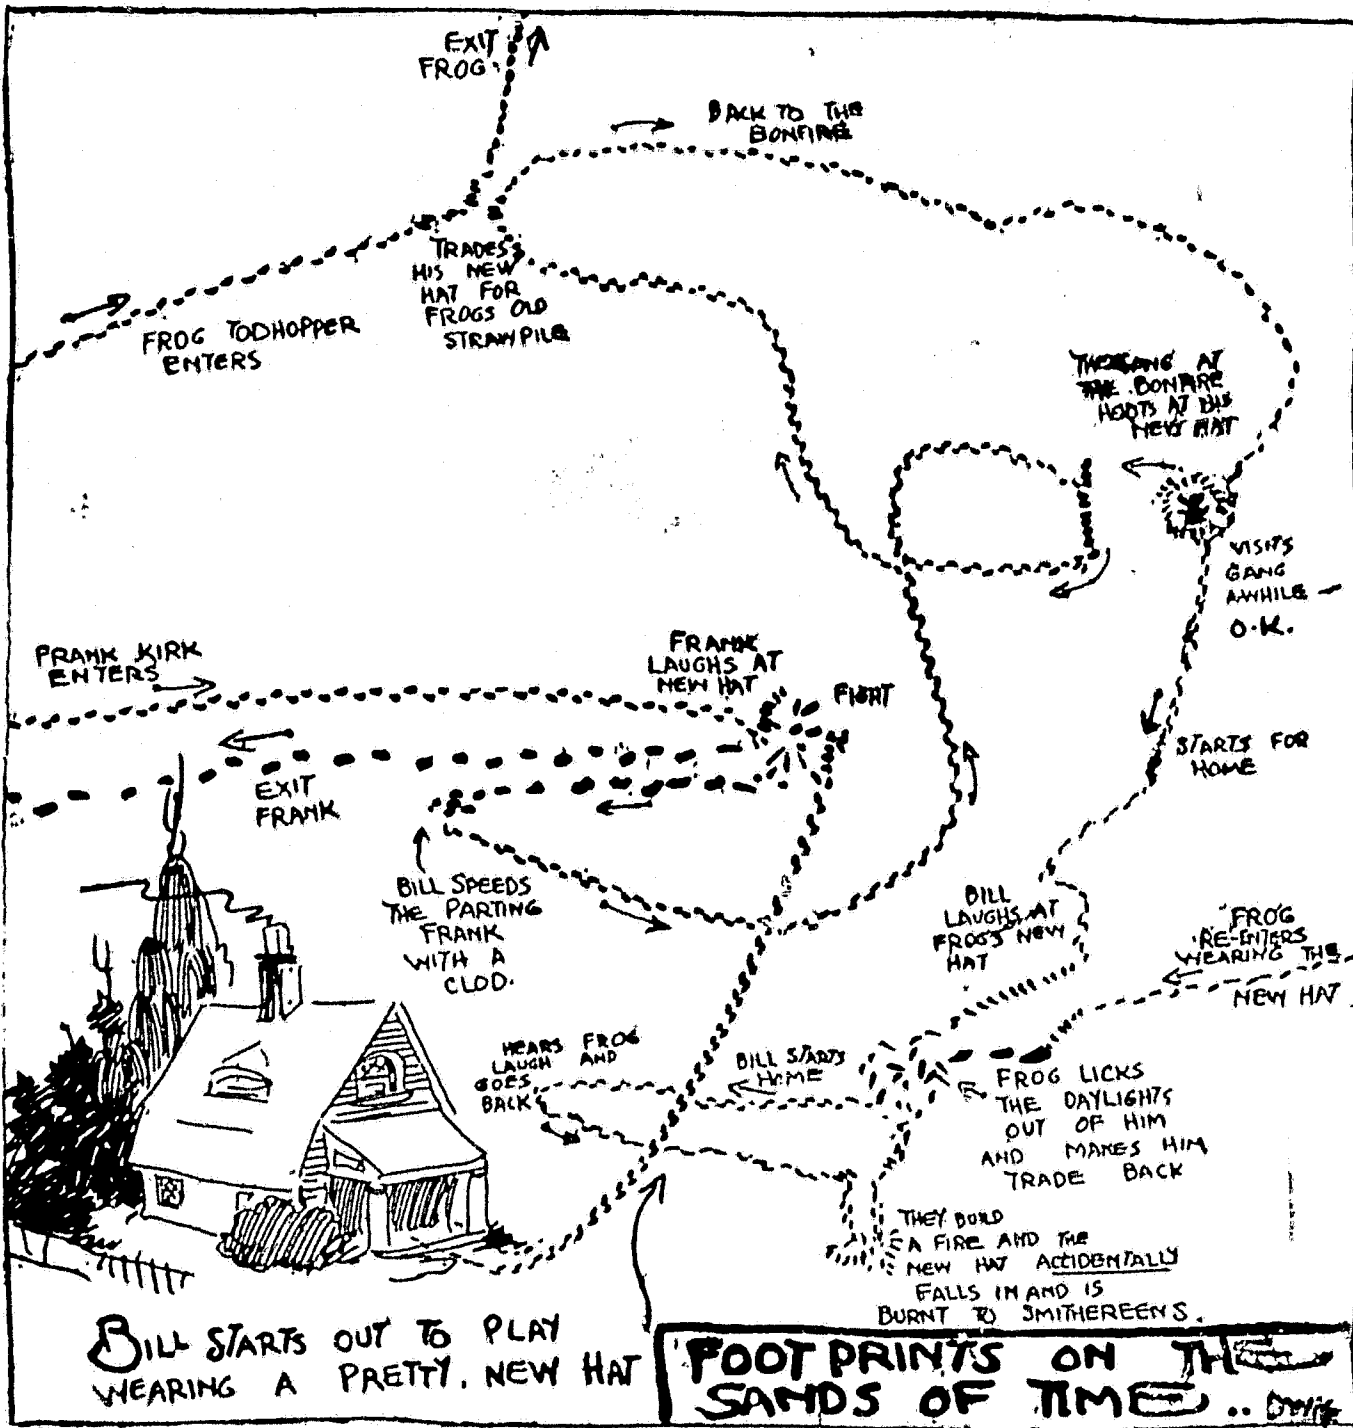 EXIT
FROG.
BACK TO THE
BONFIRE
TRADES
HIS NEW
HAT FOR
FROGS OLD
STRAWPILE
FROG TODHOPPER
ENTERS
THE GANG AT
THE BONFIRE
HOOTS AT HIS
NEW HAT
VISITS
GANG
AWHILE —
O.K.
FRANK KIRK
ENTERS
FRANK
LAUGHS AT
NEW HAT
FIGHT
STARTS FOR
HOME
EXIT
FRANK
BILL SPEEDS
THE PARTING
FRANK
WITH A
CLOD.
BILL
LAUGHS AT
FROG'S NEW
HAT
FROG
RE-ENTERS
WEARING THE
NEW HAT
HEARS FROG
LAUGH AND
GOES
BACK
BILL STARTS
HOME
FROG LICKS
THE DAYLIGHTS
OUT OF HIM
AND MAKES HIM
TRADE BACK
THEY BUILD
A FIRE AND THE
NEW HAT ACCIDENTALLY
FALLS IN AND IS
BURNT TO SMITHEREENS.
BILL STARTS OUT TO PLAY
WEARING A PRETTY. NEW HAT
FOOT PRINTS ON THE
SANDS OF TIME..